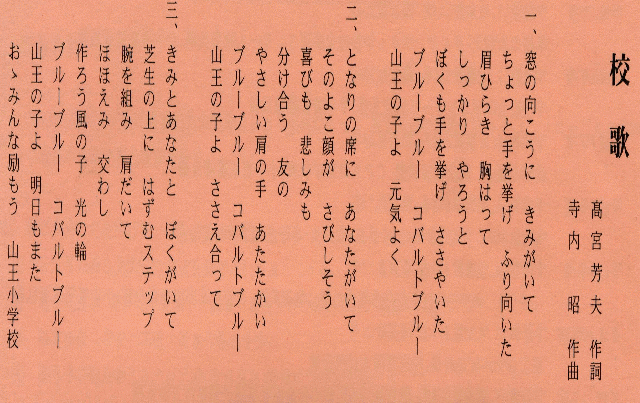 校歌
髙宮芳夫 作詞
寺内 昭 作曲
一、窓の向こうに きみがいて
ちょっと手を挙げ ふり向いた
眉ひらき 胸はって
しっかり やろうと
ぼくも手を挙げ ささやいた
ブルーブルー コバルトブルー
山王の子よ 元気よく
二、となりの席に あなたがいて
そのよこ顔が さびしそう
喜びも 悲しみも
分け合う 友の
やさしい肩の手 あたたかい
ブルーブルー コバルトブルー
山王の子よ ささえ合って
三、きみとあなたと ぼくがいて
芝生の上に はずむステップ
腕を組み 肩だいて
ほほえみ 交わし
作ろう風の子 光の輪
ブルーブルー コバルトブルー
山王の子よ 明日もまた
おゝみんな励もう 山王小学校